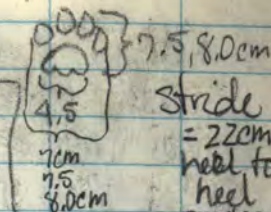 7.5, 8.0cm
4.5
7cm
7.5
8.0cm
stride
= 22cm
heel to
heel